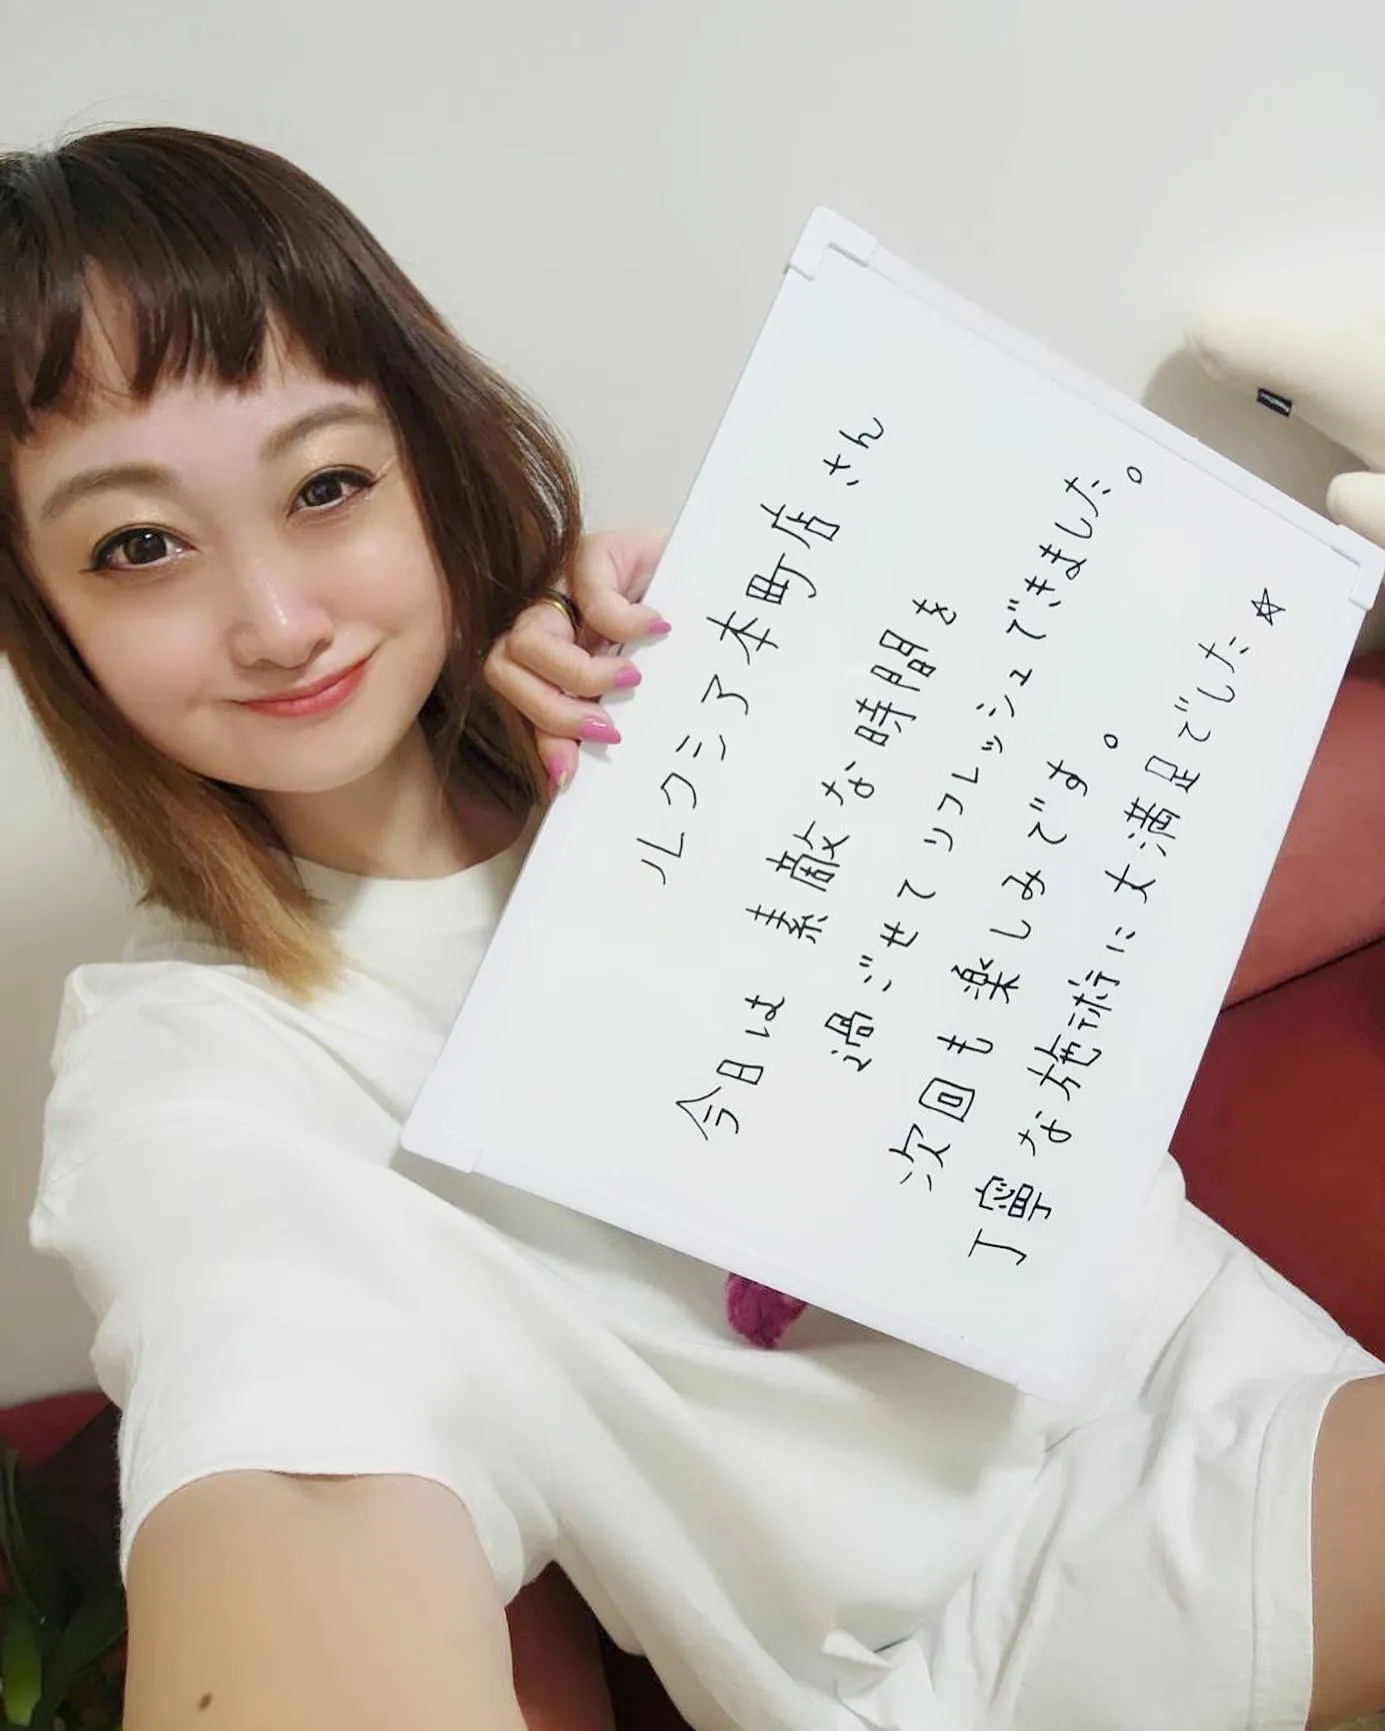 ルクシア本町店さん
今日は素敵な時間を
過ごせてリフレッシュできました。
次回も楽しみです。
丁寧な施術に大満足でした☆